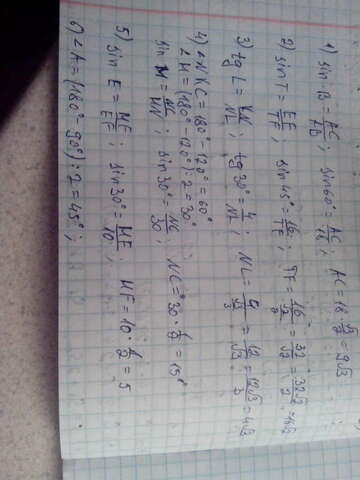 1) sin B = AC/AB ; sin60° = AC/18 ; AC = 18 · √3/2 = 9√3
2) sin T = EF/TF ; sin 45° = 16/TF ; TF = 16/(√2/2) = 32/√2 = 32√2/2 = 16√2
3) tg L = KN/NL ; tg 30° = 4/NL ; NL = 4/(√3/3) = 12/√3 = 12√3/3 = 4√3
4) ∠NKC = 180° - 120° = 60°
∠M = (180° - 120°) : 2 = 30°
sin M = NC/MN ; sin 30° = NC/30 ; NC = 30 · 1/2 = 15°
5) sin E = MF/EF ; sin 30° = MF/10 ; MF = 10 · 1/2 = 5
6) ∠A = (180° - 90°) : 2 = 45° ;